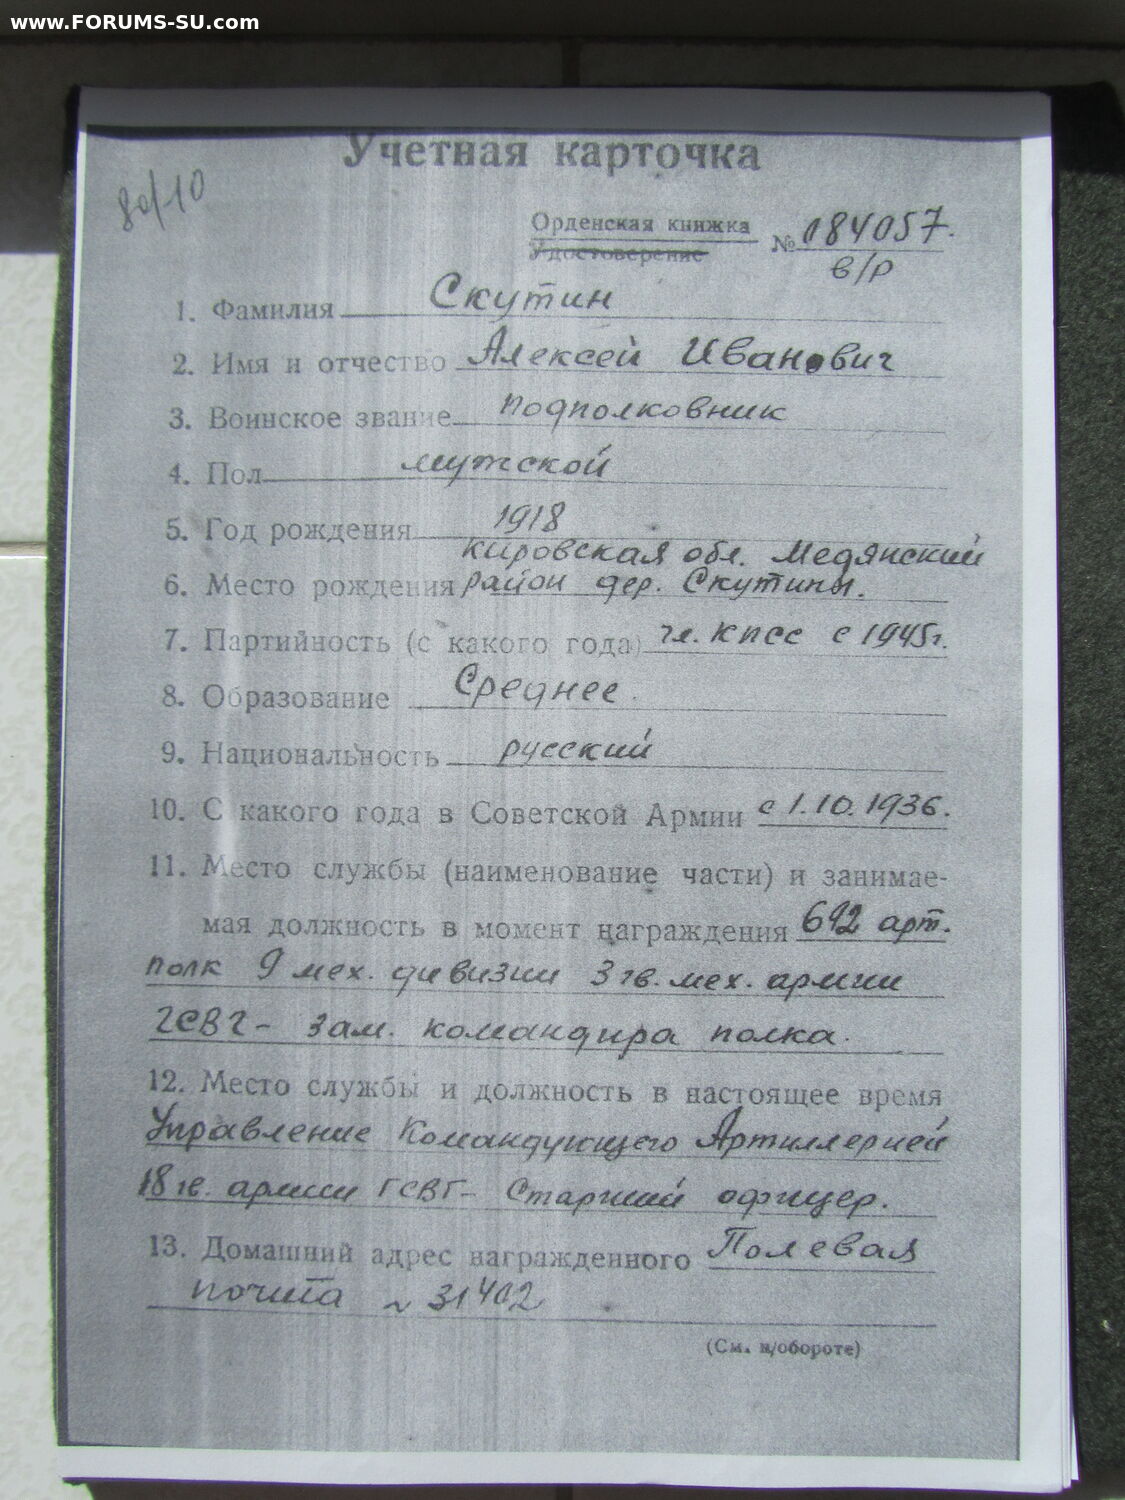 www.FORUMS-SU.com
Учетная карточка
Орденская книжка
Удостоверение
№ 184057.
в/р
1. Фамилия Скутин
2. Имя и отчество Алексей Иванович
3. Воинское звание подполковник
4. Пол мужской
5. Год рождения 1918
Кировская обл. Медянский
6. Место рождения район дер. Скутины.
7. Партийность (с какого года) чл. КПСС с 1945г.
8. Образование Среднее.
9. Национальность русский
10. С какого года в Советской Армии с 1.10.1936.
11. Место службы (наименование части) и занимае-
мая должность в момент награждения 692 арт.
полк 9 мех. дивизии 3 гв. мех. армии
ГСВГ - зам. командира полка.
12. Место службы и должность в настоящее время
Управление Командующего Артиллерией
18 гв. армии ГСВГ - Старший офицер.
13. Домашний адрес награжденного Полевая
почта ~ 31402
(См. н/обороте)